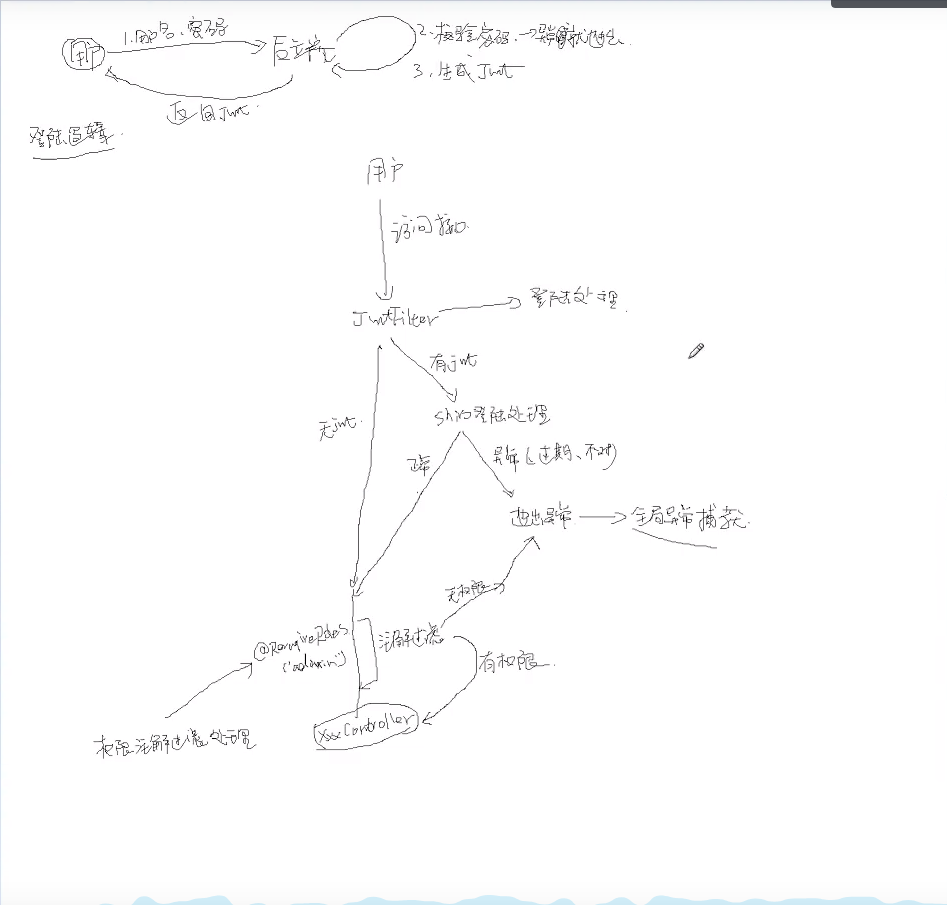 1.用户名、密码
用户
后端
2.校验密码.→异常就抛出.
3.生成Jwt
返回Jwt.
登陆逻辑.
用户
访问接口.
JwtFilter
登陆处理.
有jwt
无jwt.
shiro登陆处理
正常
异常(过期、不对)
抛出异常
全局异常捕获.
无权限
@RequireRoles
("admin")
注解过滤
有权限.
XxxController
权限注解过滤处理